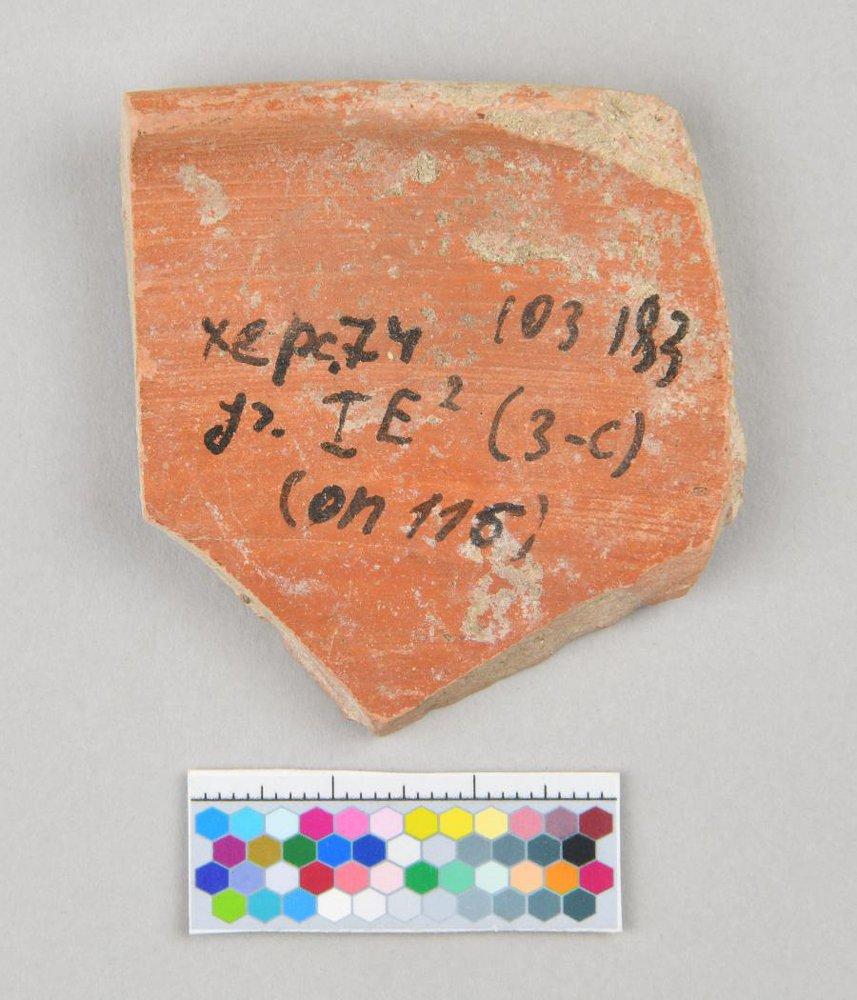 херс.74 103 183
уг. I E² (3-С)
(оп 116)